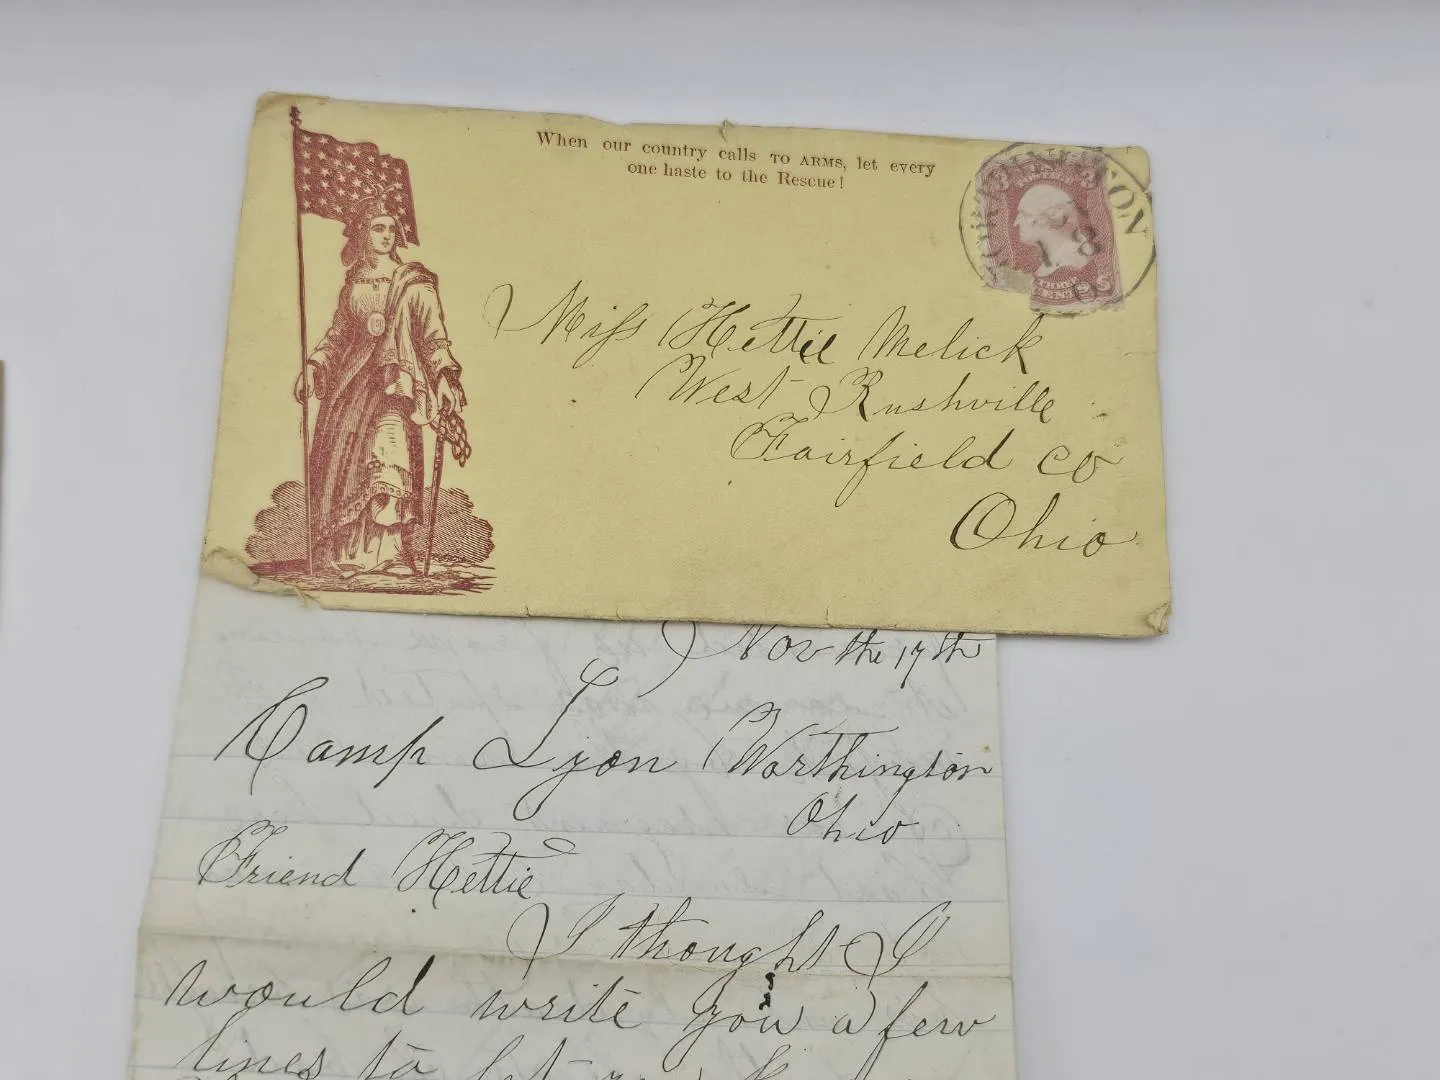 When our country calls TO ARMS, let every
one haste to the Rescue!
3 3
18
Miss Hettie Melick
West Rushville
Fairfield Co
Ohio
Nov the 17th
Camp Lyon Worthington
Ohio
Friend Hettie
I thought I
would write you a few
lines to let you